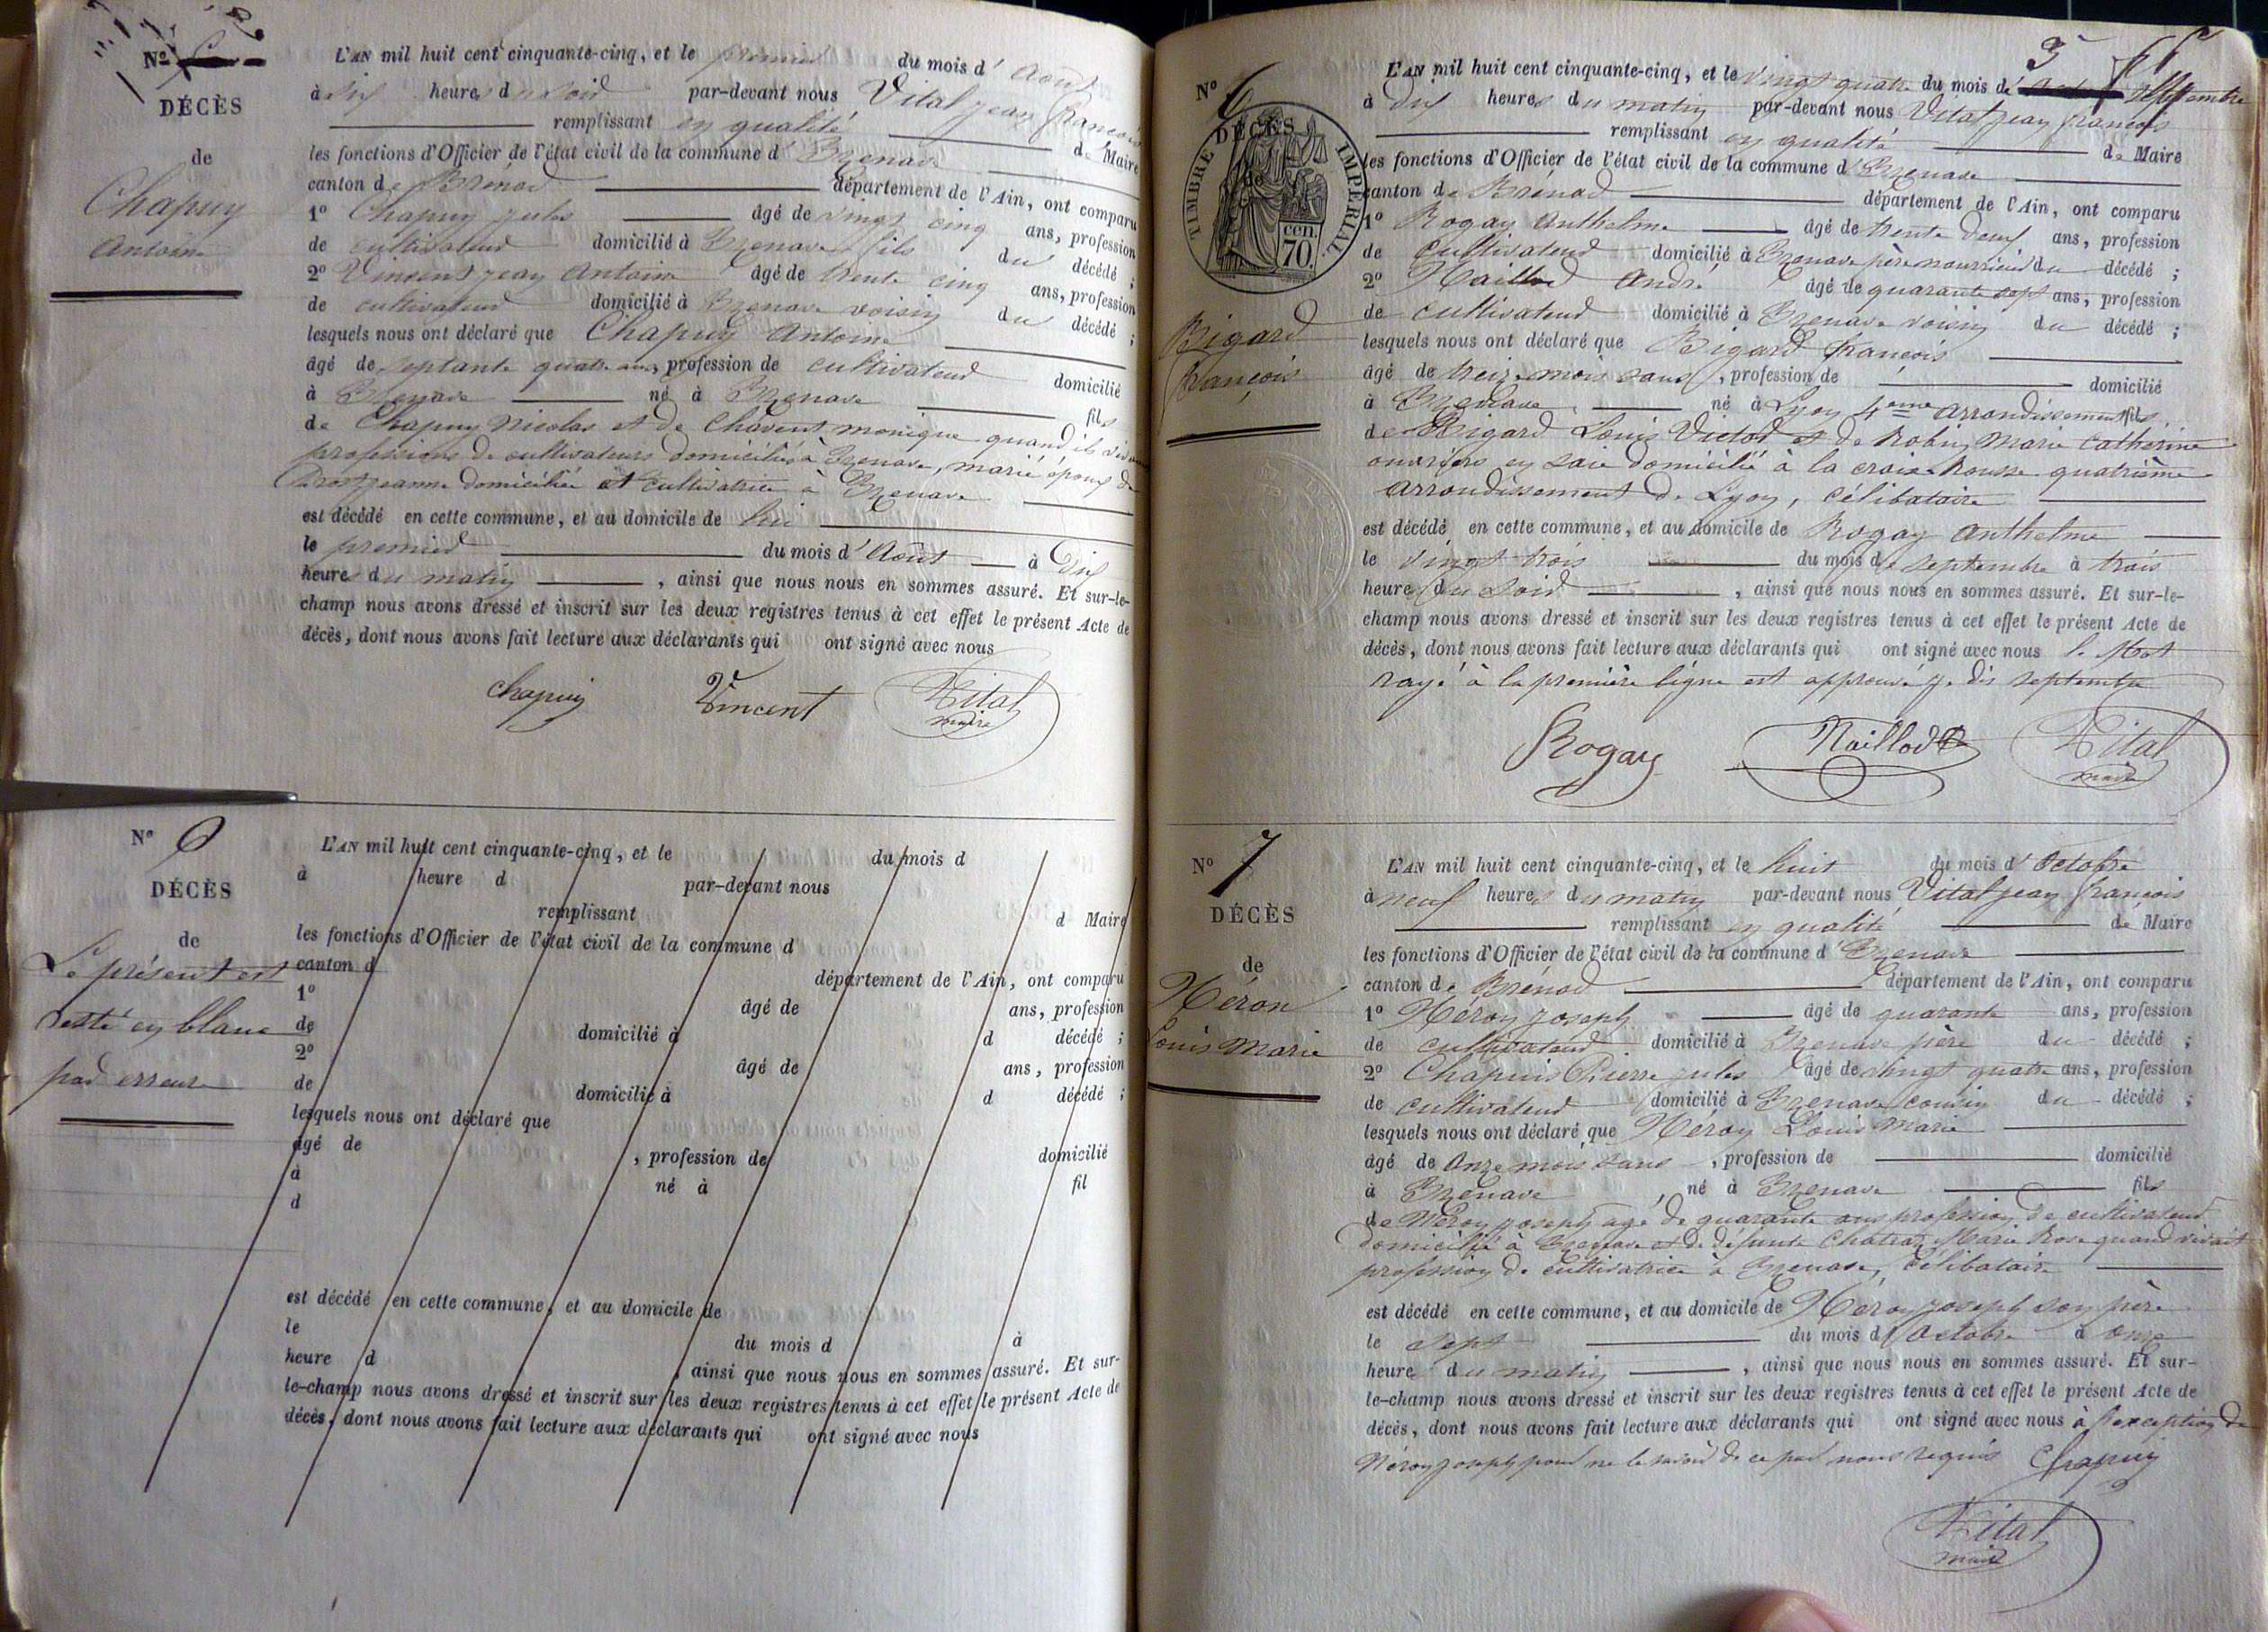 Nº
DÉCÈS
de
Chapuy
Antoine
L'AN mil huit cent cinquante-cinq, et le premier du mois d'Août
à six heures du soir par-devant nous Vital Jean François
remplissant en qualité de Maire
les fonctions d'Officier de l'état civil de la commune d'Izenave
canton de Brénod département de l'Ain, ont comparu
1º Chapuy Jules âgé de vingt cinq ans, profession
de cultivateur domicilié à Izenave fils du décédé ;
2º Vincent Jean Antoine âgé de trente cinq ans, profession
de cultivateur domicilié à Izenave voisin du décédé ;
lesquels nous ont déclaré que Chapuy Antoine
âgé de septante quatre ans, profession de cultivateur domicilié
à Izenave né à Izenave fils
de Chapuy Nicolas et de Chavent monique quand ils vivaient
professions de cultivateurs domiciliés à Izenave, marié époux de
Prost jeanne domiciliée et cultivatrice à Izenave
est décédé en cette commune, et au domicile de lui
le premier du mois d'Août à dix
heures du matin, ainsi que nous nous en sommes assuré. Et sur-le-
champ nous avons dressé et inscrit sur les deux registres tenus à cet effet le présent Acte de
décès, dont nous avons fait lecture aux déclarants qui ont signé avec nous
chapuy Vincent Vital
maire
Nº 6
DÉCÈS
de
Le présent est
resté en blanc
par erreur
L'AN mil huit cent cinquante-cinq, et le du mois d
à heure d par-devant nous
remplissant d Maire
les fonctions d'Officier de l'état civil de la commune d
canton d département de l'Ain, ont comparu
1º âgé de ans, profession
de domicilié à d décédé ;
2º âgé de ans, profession
de domicilié à d décédé ;
lesquels nous ont déclaré que
âgé de , profession de domicilié
à né à fil
d
est décédé en cette commune, et au domicile de
le du mois d à
heure d , ainsi que nous nous en sommes assuré. Et sur-
le-champ nous avons dressé et inscrit sur les deux registres tenus à cet effet le présent Acte de
décès, dont nous avons fait lecture aux déclarants qui ont signé avec nous
3
Nº 6
DÉCÈS
de
TIMBRE IMPÉRIAL
cen.
70.
Bigard
françois
L'AN mil huit cent cinquante-cinq, et le vingt quatre du mois de septembre
à dix heures du matin par-devant nous Vital jean françois
remplissant en qualité de Maire
les fonctions d'Officier de l'état civil de la commune d'Izenave
canton de Brénod département de l'Ain, ont comparu
1º Rogay Anthelme âgé de trente deux ans, profession
de cultivateur domicilié à Izenave père nourricier du décédé ;
2º Naillod André âgé de quarante sept ans, profession
de cultivateur domicilié à Izenave voisin du décédé ;
lesquels nous ont déclaré que Bigard françois
âgé de treize mois sans, profession de domicilié
à Izenave né à Lyon 4eme arrondissement fils
de Bigard Louis Victor et de Robin Marie Catherine
ouvriers en soie domicilié à la croix Rousse quatrième
arrondissement de Lyon, célibataire
est décédé en cette commune, et au domicile de Rogay Anthelme
le vingt trois du mois de septembre à trois
heure du soir, ainsi que nous nous en sommes assuré. Et sur-le-
champ nous avons dressé et inscrit sur les deux registres tenus à cet effet le présent Acte de
décès, dont nous avons fait lecture aux déclarants qui ont signé avec nous le Mot
rayé à la première ligne est approuvé je dis septembre
Rogay Naillod Vital
maire
Nº 7
DÉCÈS
de
Néron
Louis Marie
L'AN mil huit cent cinquante-cinq, et le huit du mois d'Octobre
à neuf heures du matin par-devant nous Vital jean françois
remplissant en qualité de Maire
les fonctions d'Officier de l'état civil de la commune d'Izenave
canton de Brénod département de l'Ain, ont comparu
1º Néron joseph âgé de quarante ans, profession
de cultivateur domicilié à Izenave père du décédé ;
2º Chapuis Pierre jules âgé de vingt quatre ans, profession
de cultivateur domicilié à Izenave cousin du décédé ;
lesquels nous ont déclaré que Néron Louis Marie
âgé de onze mois sans, profession de domicilié
à Izenave, né à Izenave fils
de Néron joseph agé de quarante ans profession de cultivateur
domicilié à Izenave et de défunte Marie Rose quand vivait
profession de cultivatrice à Izenave, célibataire
est décédé en cette commune, et au domicile de Néron joseph son père
le sept du mois d'Octobre à onze
heure du matin, ainsi que nous nous en sommes assuré. Et sur-
le-champ nous avons dressé et inscrit sur les deux registres tenus à cet effet le présent Acte de
décès, dont nous avons fait lecture aux déclarants qui ont signé avec nous à l'exception de
Néron joseph pour ne le savoir de ce par nous requis Chapuy
Vital
maire